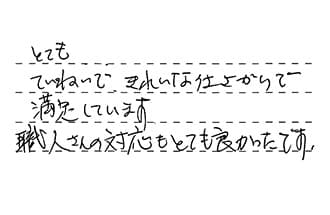 とても
ていねいで、きれいな仕上がりで
満足しています
職人さんの対応もとても良かったです。